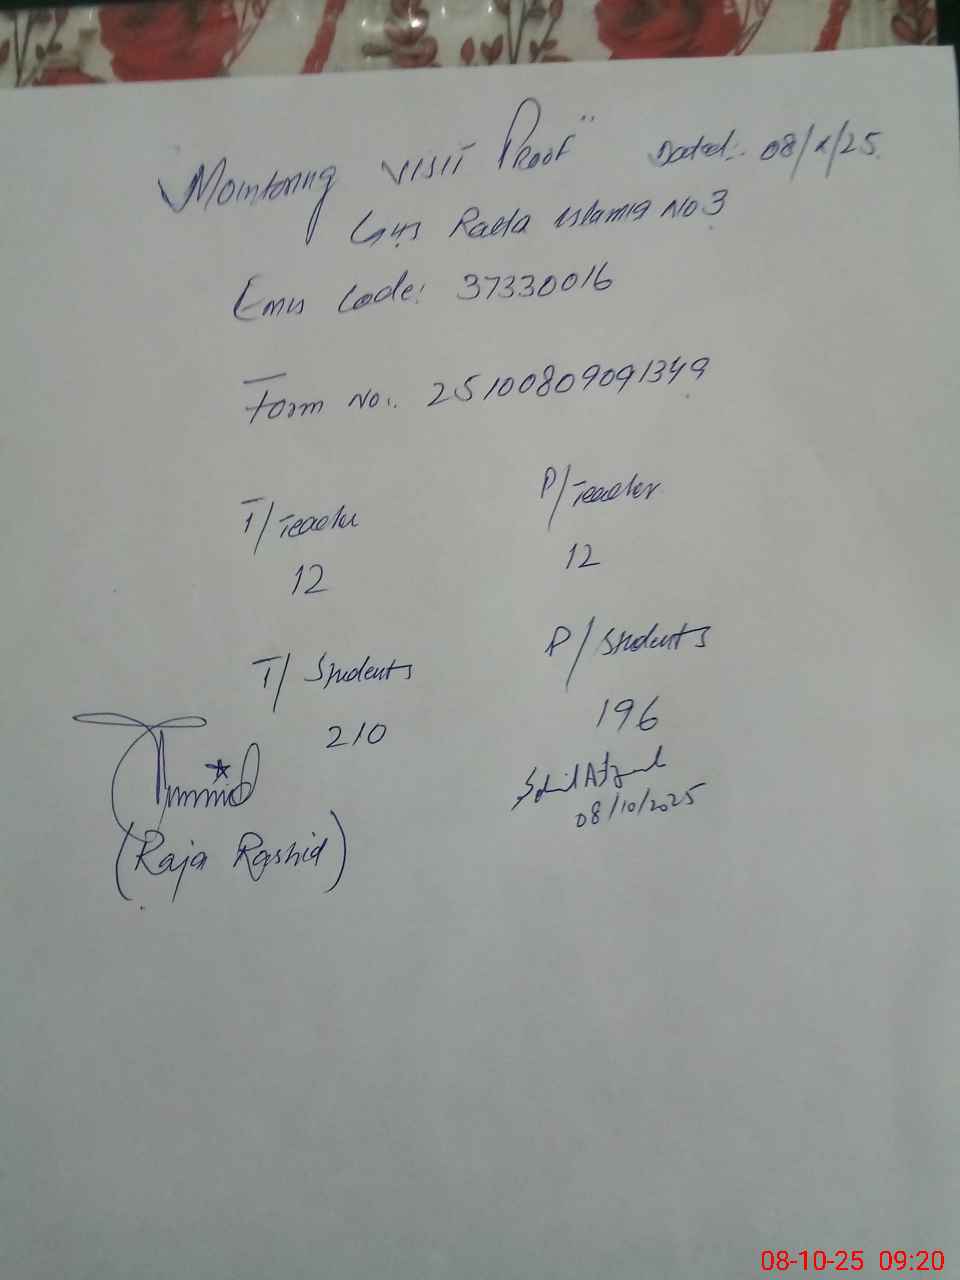 "Monitoring Visit Proof" Dated: 08/x/25
GHS Raeta Islamia No 3
Emis Code: 37330016
Form No: 25100809091349
T/Teacher P/Teacher
12 12
T/Students P/Students
210 196
Sohail Afzal
08/10/2025
(Raja Rashid)
08-10-25 09:20